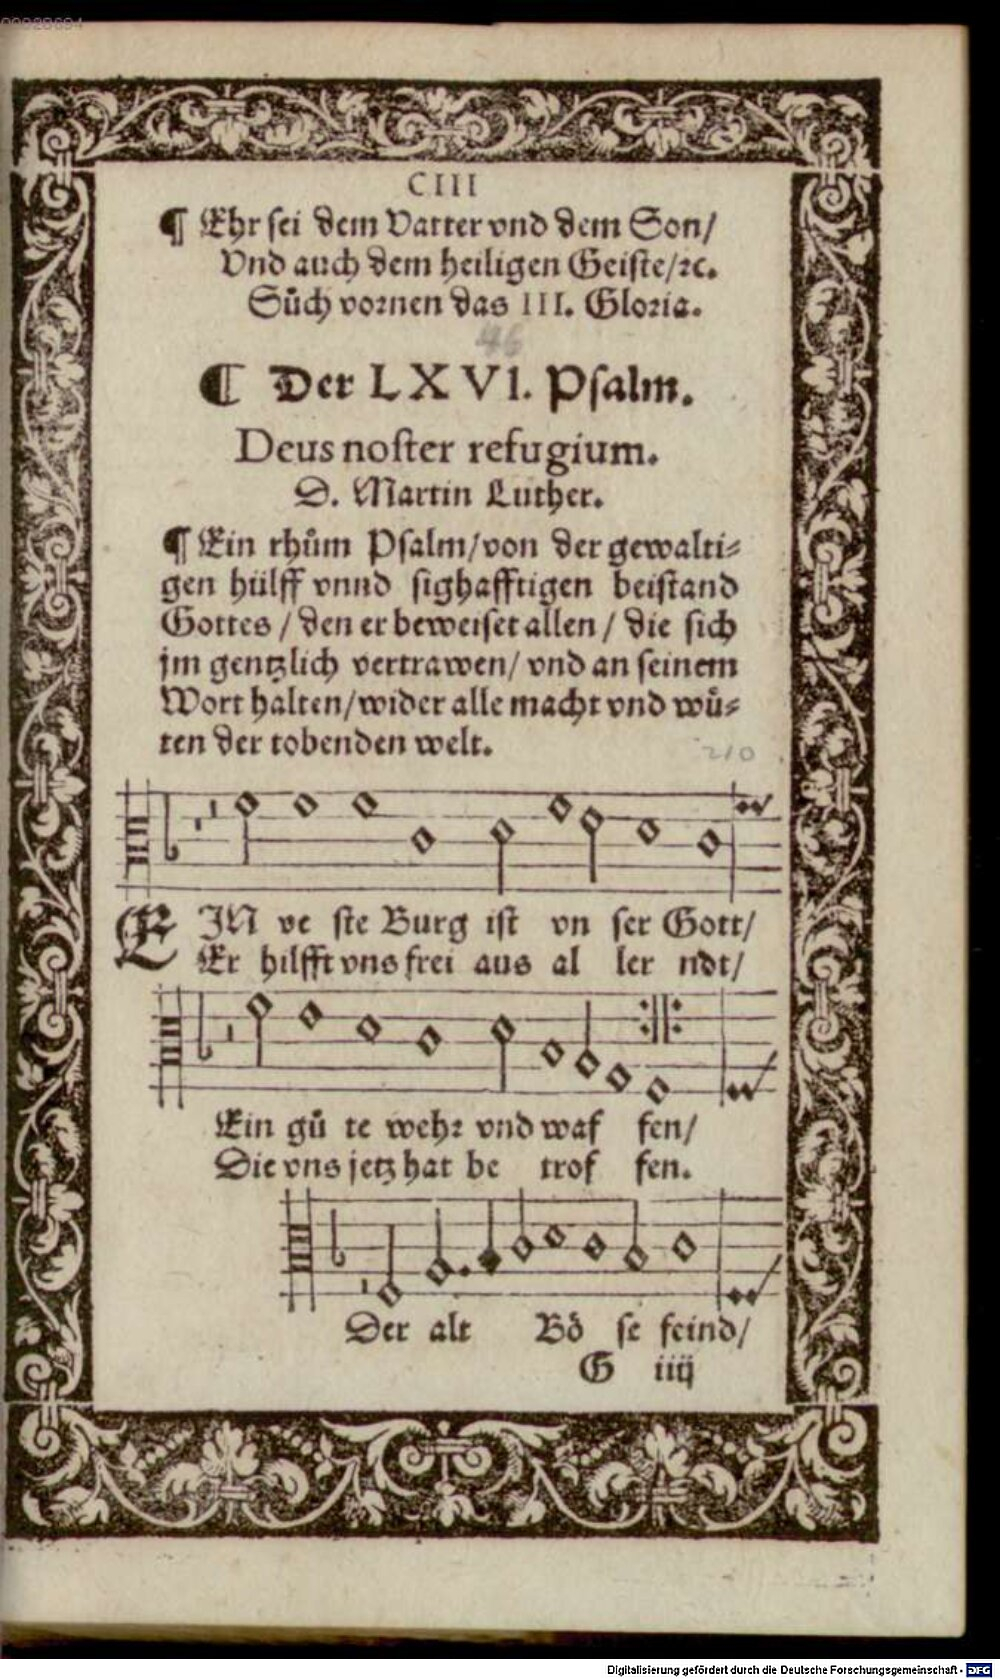 00028694
CIII
¶ Ehr sei dem Vatter vnd dem Son/
Vnd auch dem heiligen Geiste/ꝛc.
Sůch voꝛnen das III. Gloꝛia.
46
¶ Der LXVI. Psalm.
Deus noster refugium.
D. Martin Luther.
¶ Ein rhům Psalm/von der gewalti⸗
gen hülff vnnd sighafftigen beistand
Gottes / den er beweiset allen / die sich
jm gentzlich vertrawen/ vnd an seinem
Wort halten/wider alle macht vnd wů⸗
ten der tobenden welt.
210
EIN ve ste Burg ist vn ser Gott/
Er hilfft vns frei aus al ler not/
Ein gů te wehꝛ vnd waf fen/
Die vns jetz hat be trof fen.
Der alt Bö se feind/
G iiij
Digitalisierung gefördert durch die Deutsche Forschungsgemeinschaft - DFG